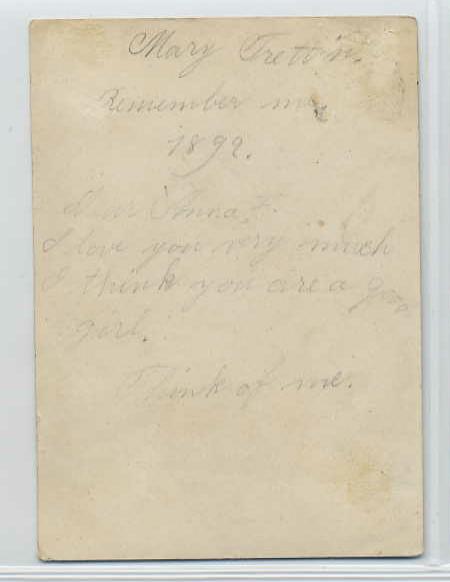 Mary Trettin.
Remember me.
1892.
Dear Anna F.
I love you very much
I think you are a good
girl.
Think of me.